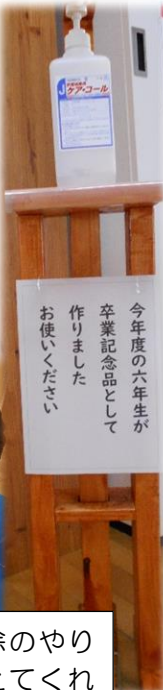 ケア・コール
今年度の六年生が
卒業記念品として
作りました
お使いください
除のやり
てくれ